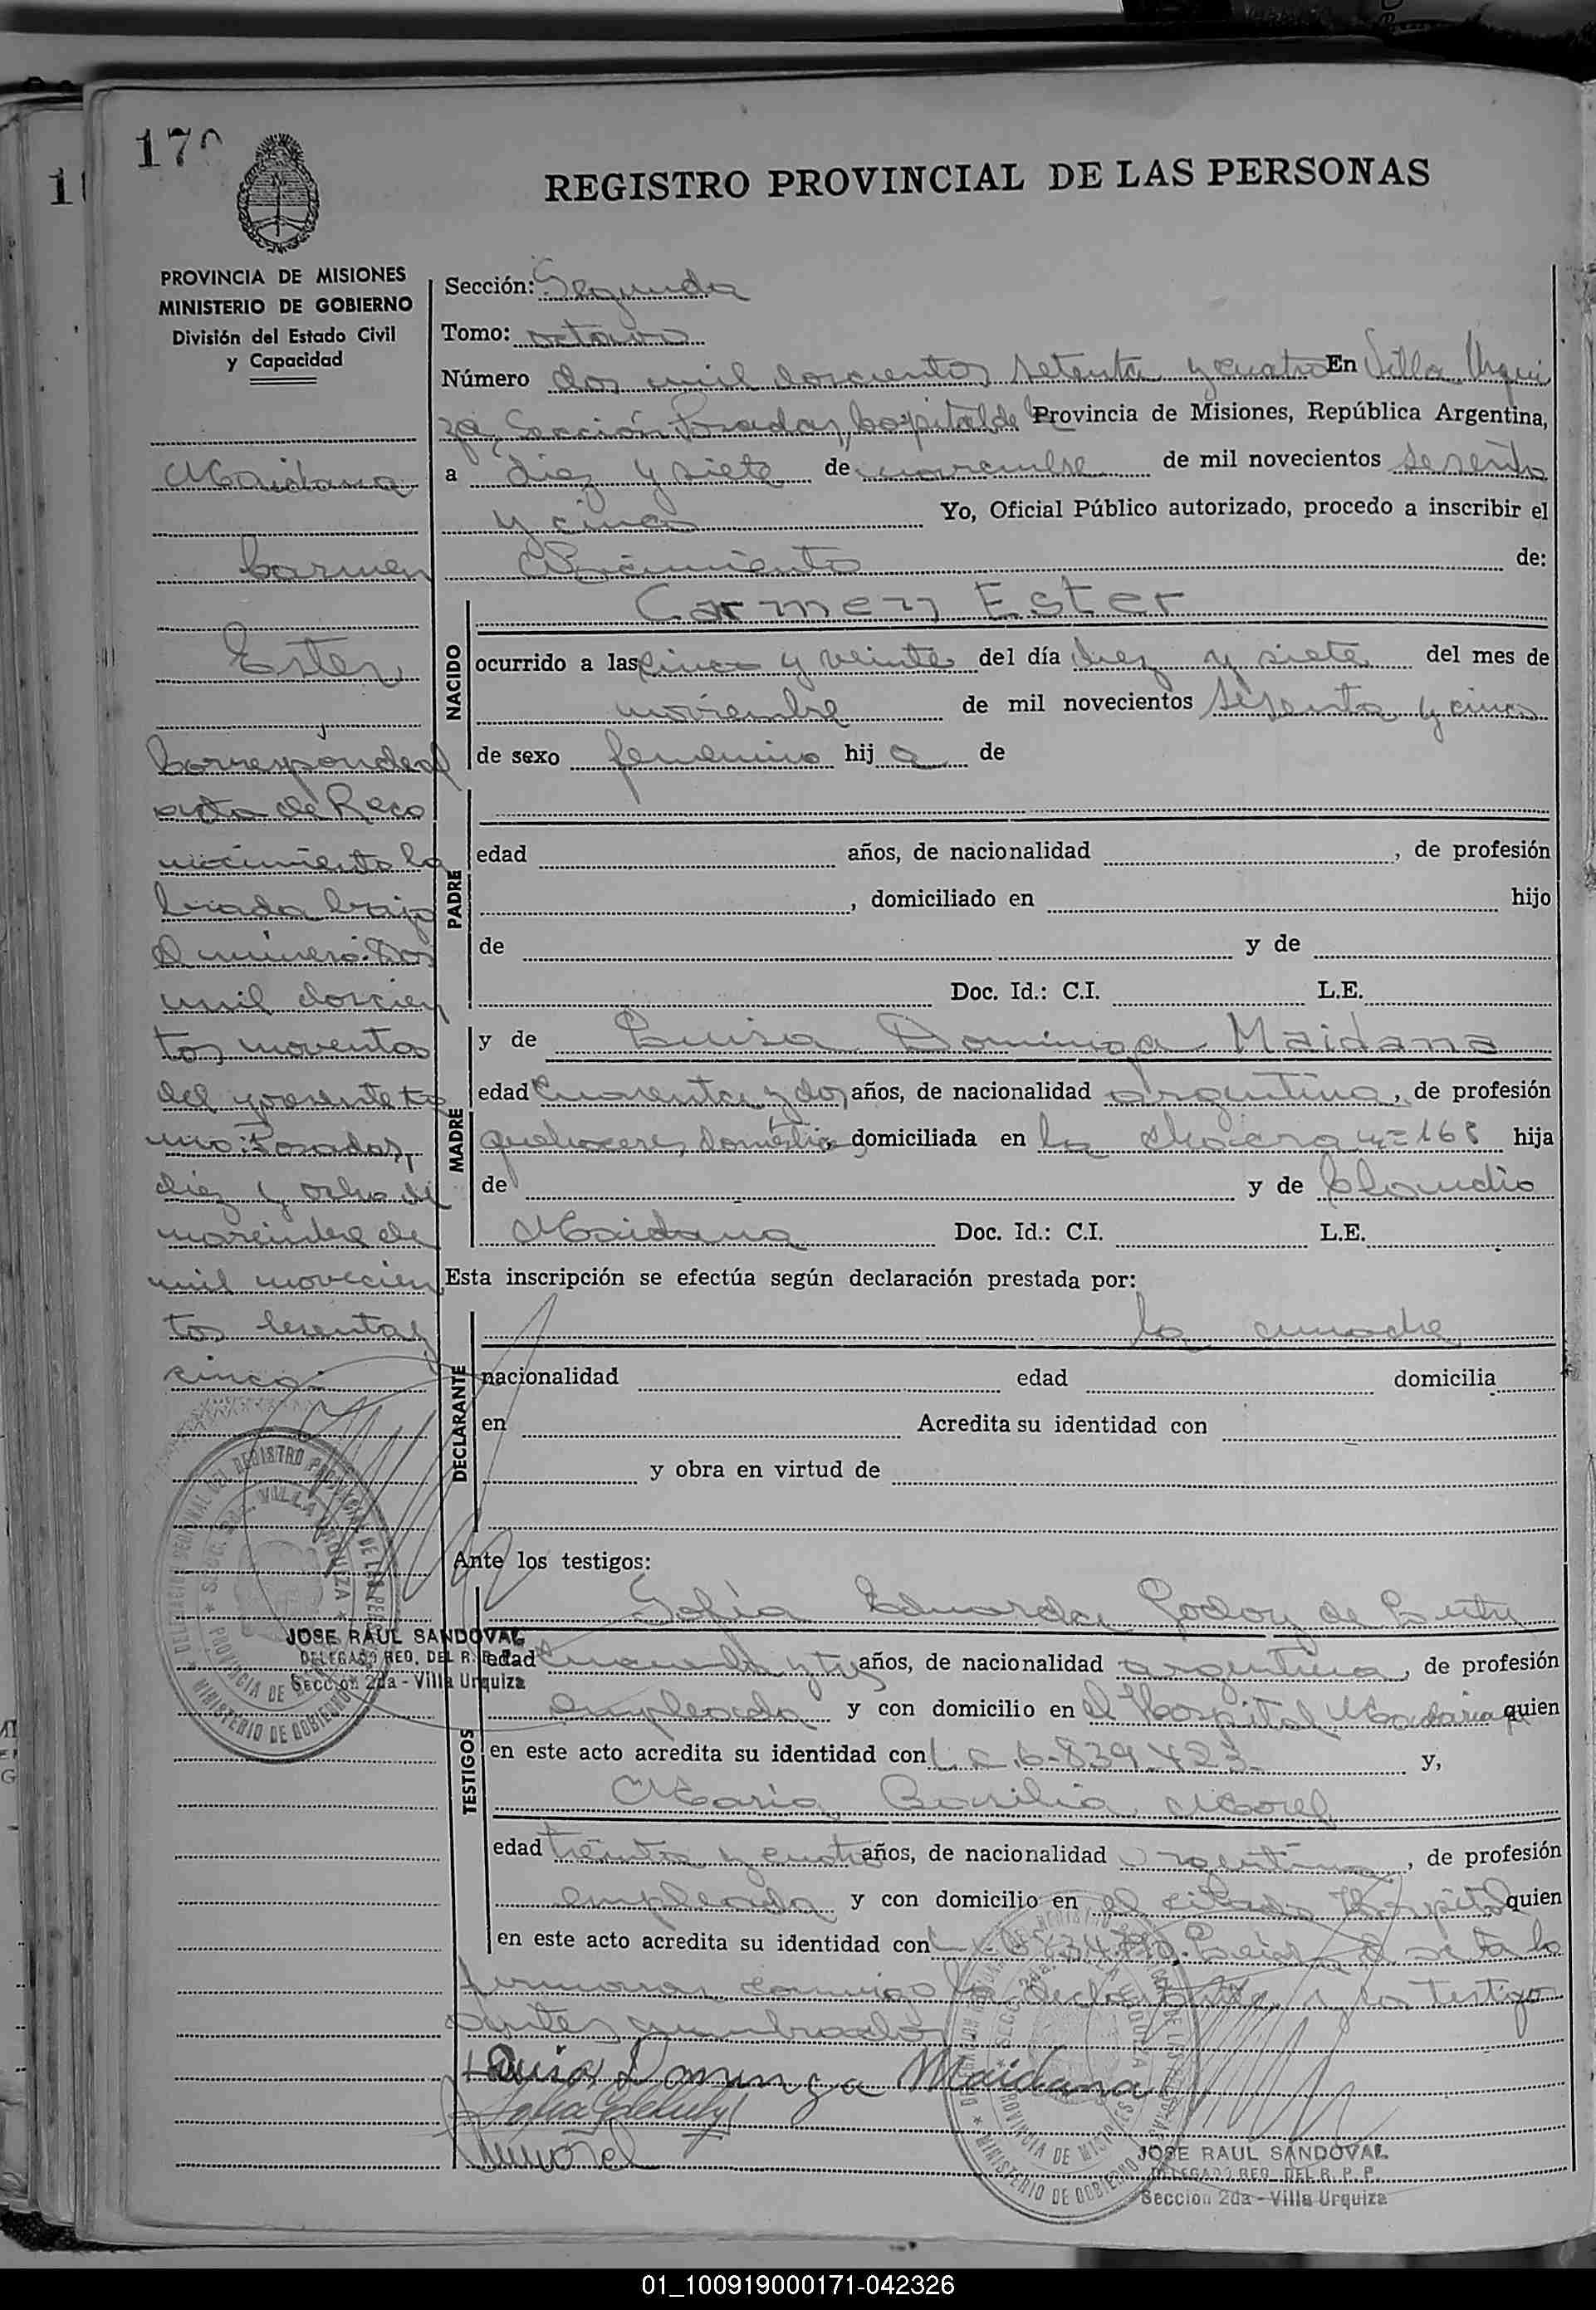 170
REGISTRO PROVINCIAL DE LAS PERSONAS
PROVINCIA DE MISIONES
MINISTERIO DE GOBIERNO
División del Estado Civil
y Capacidad
Maidana
Carmen
Ester
Corresponde al
acta de Reco
nocimiento la
brada bajo
el número: Dos
mil doscien
tos noventa
del presente to
mo: Posadas,
diez y ocho de
noviembre de
mil novecien
tos sesenta y
cinco.-
Sección: Segunda
Tomo: octavo
Número dos mil doscientos setenta y cuatro En Villa Urqui
za, Sección Posadas, hospital de Provincia de Misiones, República Argentina,
a diez y siete de noviembre de mil novecientos sesenta
y cinco Yo, Oficial Público autorizado, procedo a inscribir el
Nacimiento de:
NACIDO
Carmen Ester
ocurrido a las cinco y veinte del día diez y siete del mes de
noviembre de mil novecientos sesenta y cinco
de sexo femenino hij a de
PADRE
edad años, de nacionalidad , de profesión
, domiciliado en hijo
de y de
Doc. Id.: C.I. L.E.
MADRE
y de Luisa Dominga Maidana
edad cuarenta y dos años, de nacionalidad argentina, de profesión
quehaceres domésticos, domiciliada en la chacra nº 168 hija
de y de Claudio
Maidana Doc. Id.: C.I. L.E.
Esta inscripción se efectúa según declaración prestada por:
DECLARANTE
la madre
nacionalidad edad domicilia
en Acredita su identidad con
y obra en virtud de
Ante los testigos:
TESTIGOS
Sofía Eduarda Godoy de
edad años, de nacionalidad argentina, de profesión
empleada y con domicilio en el Hospital Madariaga quien
en este acto acredita su identidad con L.C. 6-839.423 y,
María Basilia Morel
edad treinta y cuatro años, de nacionalidad argentina, de profesión
empleada y con domicilio en el citado Hospital quien
en este acto acredita su identidad con Leída el acta la
firmaron conmigo la declarante y los testigos
antes nombrados
Luisa Dominga Maidana
Morel
DELEGACION REGIONAL DEL REGISTRO PROVINCIAL DE LAS PERSONAS
SECC. 2da. VILLA URQUIZA
PROVINCIA DE MISIONES
MINISTERIO DE GOBIERNO
JOSE RAUL SANDOVAL
DELEGADO REG. DEL R. P. P.
Sección 2da - Villa Urquiza
JOSE RAUL SANDOVAL
DELEGADO REG. DEL R. P. P.
Sección 2da - Villa Urquiza
01_100919000171-042326